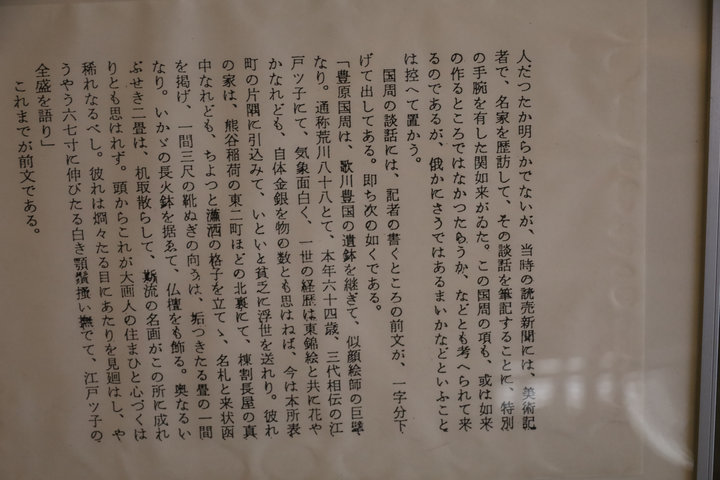 人だつたか明らかでないが、当時の読売新聞には、美術記
者で、名家を歴訪して、その談話を筆記することに、特別
の手腕を有した関如来がゐた。この国周の項も、或は如来
の作るところではなかつたらうか、などとも考へられて来
るのであるが、俄かにさうではあるまいかなどといふこと
は控へて置かう。
国周の談話には、記者の書くところの前文が、一字分下
げて出してある。即ち次の如くである。
「豊原国周は、歌川豊国の遺鉢を継ぎて、似顔絵師の巨擘
なり。通称荒川八十八とて、本年六十四歳、三代相伝の江
戸ツ子にて、気象面白く、一世の経歴は東錦絵と共に花や
かなれども、自体金銀を物の数とも思はねば、今は本所表
町の片隅に引込みて、いといと貧乏に浮世を送れり。彼れ
の家は、熊谷稲荷の東二町ほどの北裏にて、棟割長屋の真
中なれども、ちよつと瀟洒の格子を立てゝ、名札と来状函
を掲げ、一間三尺の靴ぬぎの向うは、垢つきたる畳の一間
なり。いかゞの長火鉢を据ゑて、仏壇をも飾る。奥なるい
ぶせき二畳は、机取散らして、斯流の名画がこの所に成れ
りとも思はれず。頭からこれが大画人の住まひと心づくは
稀れなるべし。彼れは烱々たる目にあたりを見廻はし、や
うやう六七寸に伸びたる白き顎鬚掻い撫でて、江戸ツ子の
全盛を語り」
これまでが前文である。